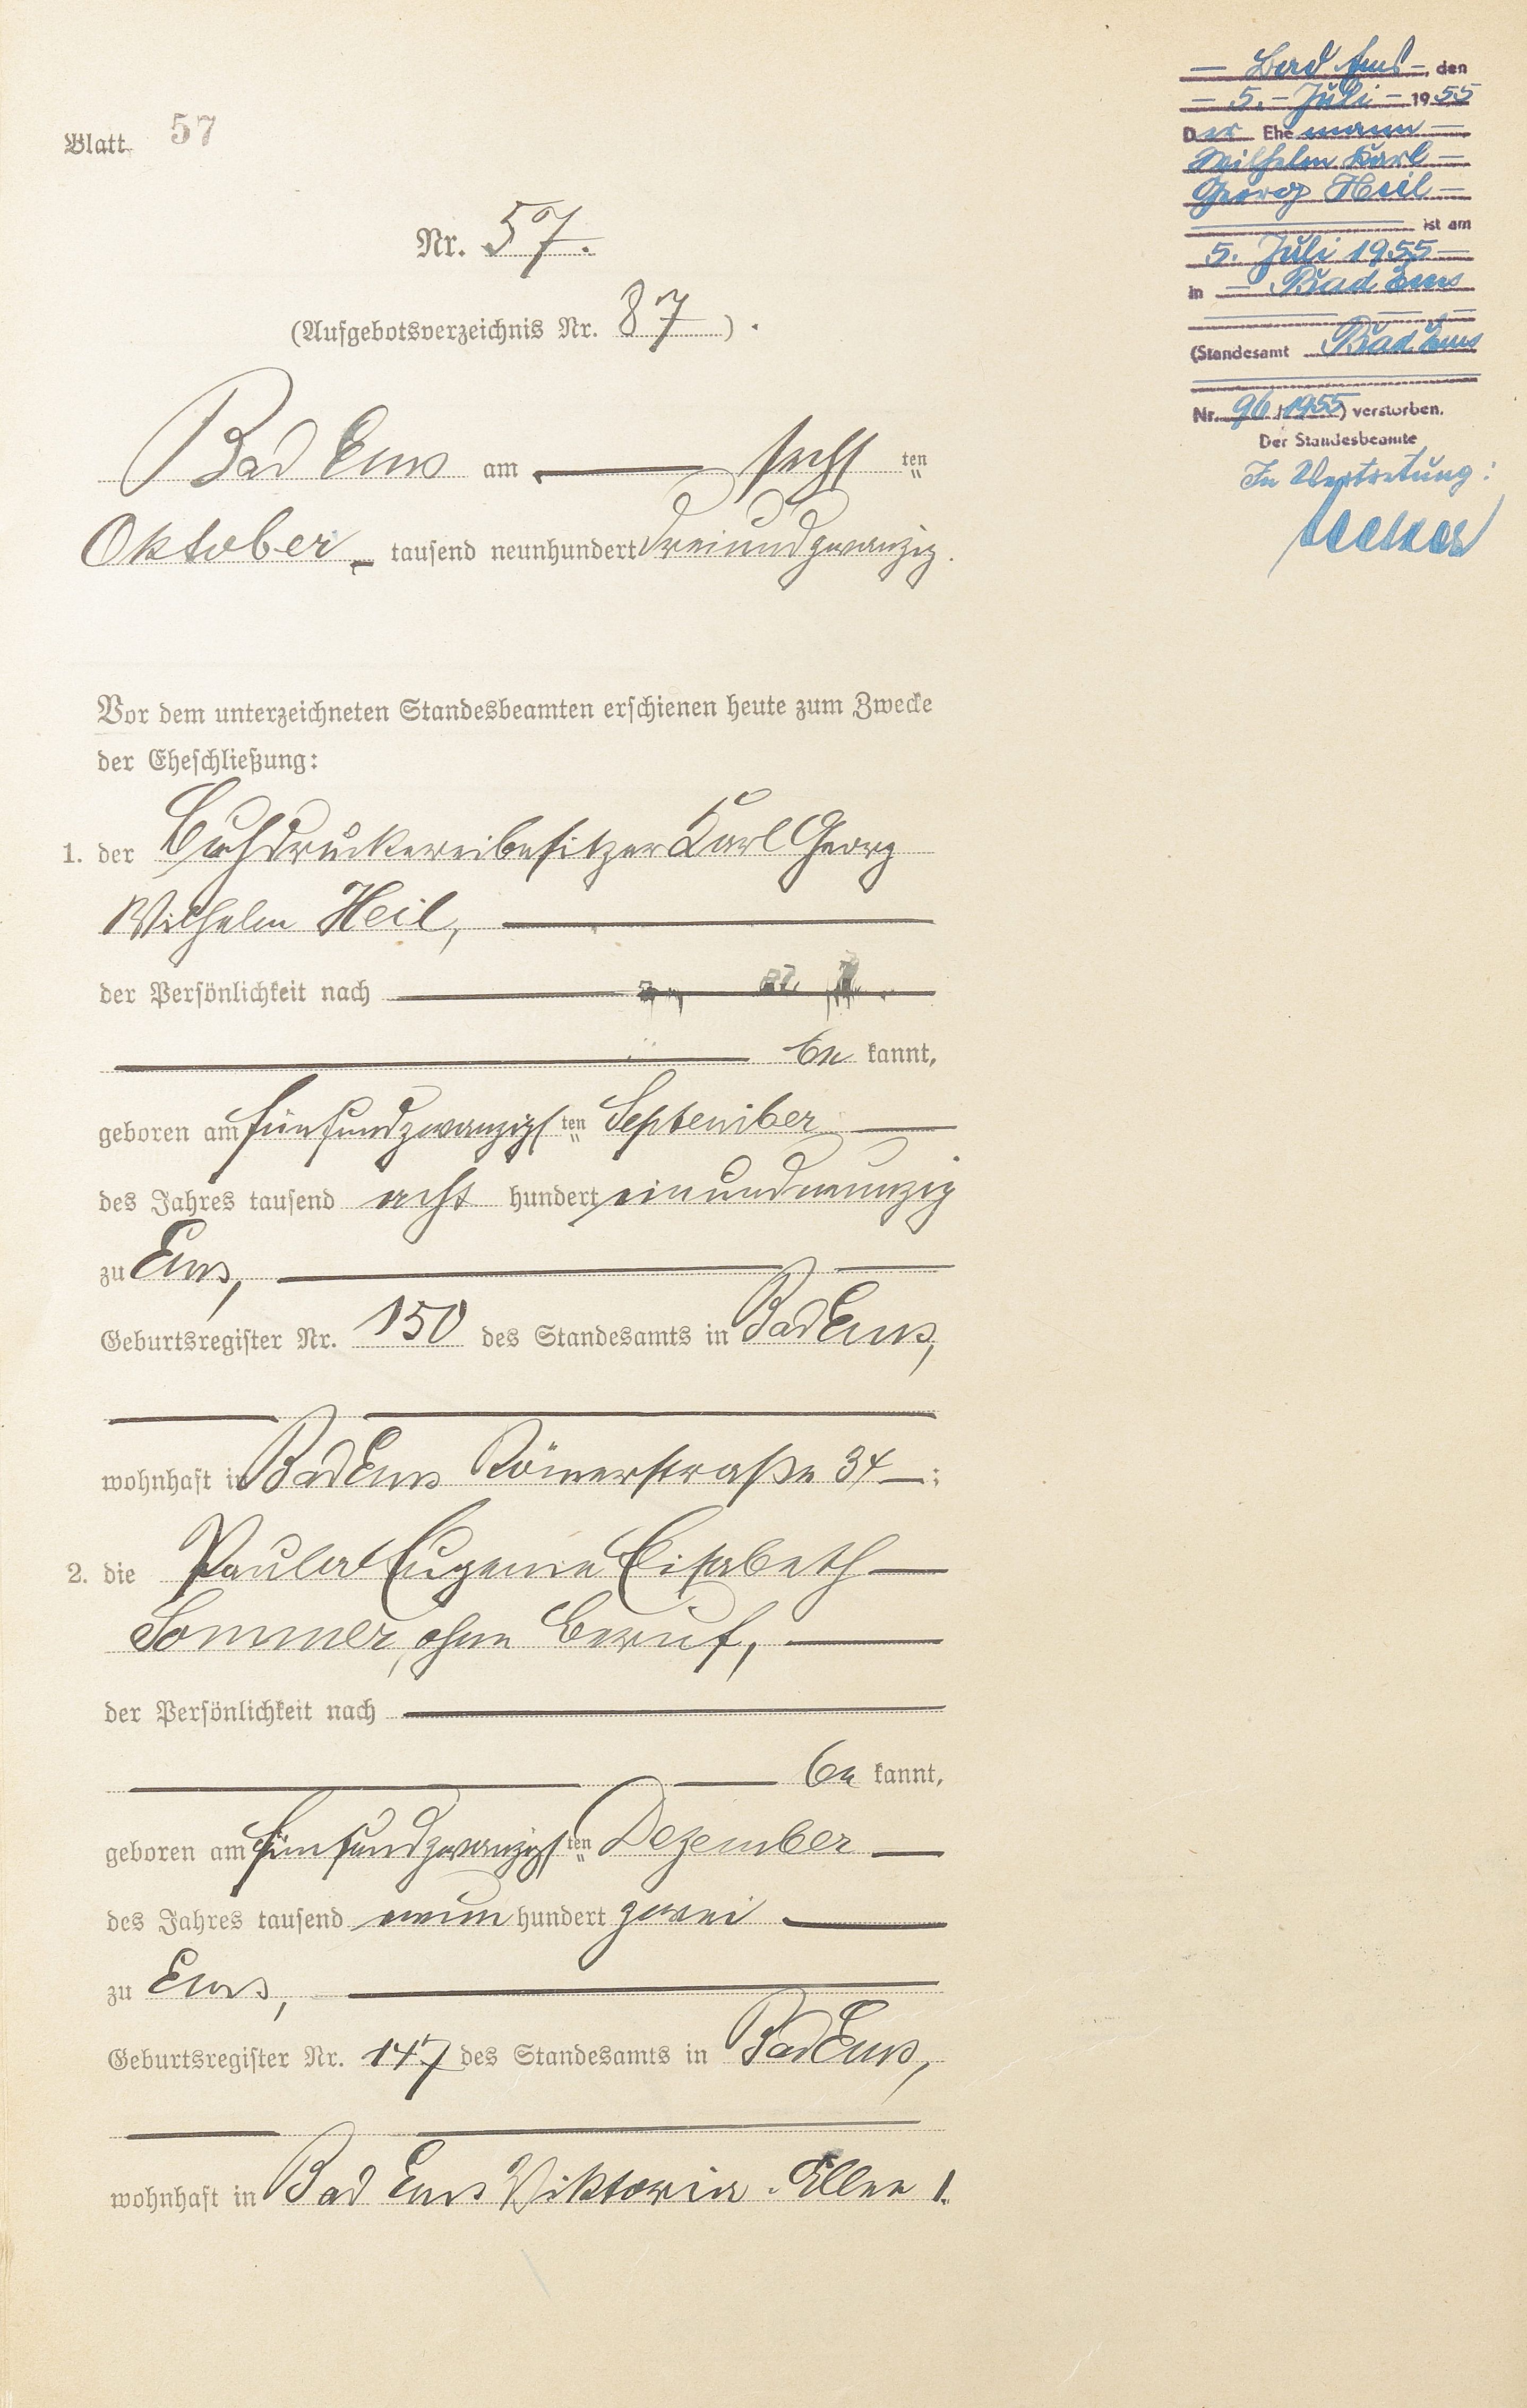 Blatt 57
Nr. 57.
(Aufgebotsverzeichnis Nr. 87).
Bad Ems am — sechs ten
Oktober – tausend neunhundert dreiundzwanzig.
Vor dem unterzeichneten Standesbeamten erschienen heute zum Zwecke
der Eheschließung:
1. der Buchdruckereibesitzer Karl Georg
Wilhelm Heil, —
der Persönlichkeit nach —
— be kannt,
geboren am fünfundzwanzigs ten September —
des Jahres tausend acht hundert einundneunzig
zu Ems, —
Geburtsregister Nr. 150 des Standesamts in Bad Ems,
wohnhaft in Bad Ems Römerstraße 34 —;
2. die Paula Eugenie Elisabeth —
Sommer, ohne Beruf, —
der Persönlichkeit nach —
— be kannt,
geboren am fünfundzwanzigs ten Dezember —
des Jahres tausend neun hundert zwei —
zu Ems, —
Geburtsregister Nr. 147 des Standesamts in Bad Ems,
wohnhaft in Bad Ems Viktoria-Allee 1.
— Bad Ems –, den
– 5. – Juli – 1955
Der Ehemann –
Wilhelm Karl –
Georg Heil –
ist am
5. Juli 1955 –
in – Bad Ems
(Standesamt Bad Ems
Nr. 96/1955) verstorben.
Der Standesbeamte
In Vertretung: